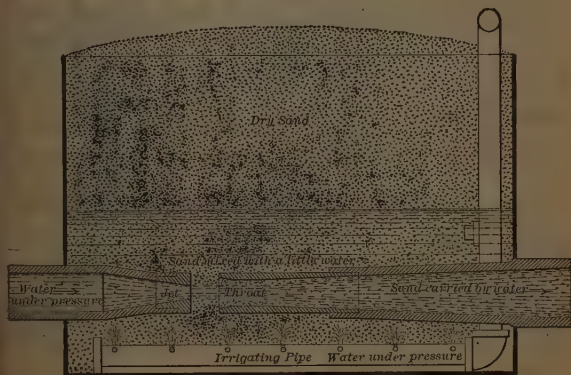 Dry Sand
Sand mixed with a little water
Water
under pressure
Jet
Throat
Sand carried by water
Irrigating Pipe Water under pressure